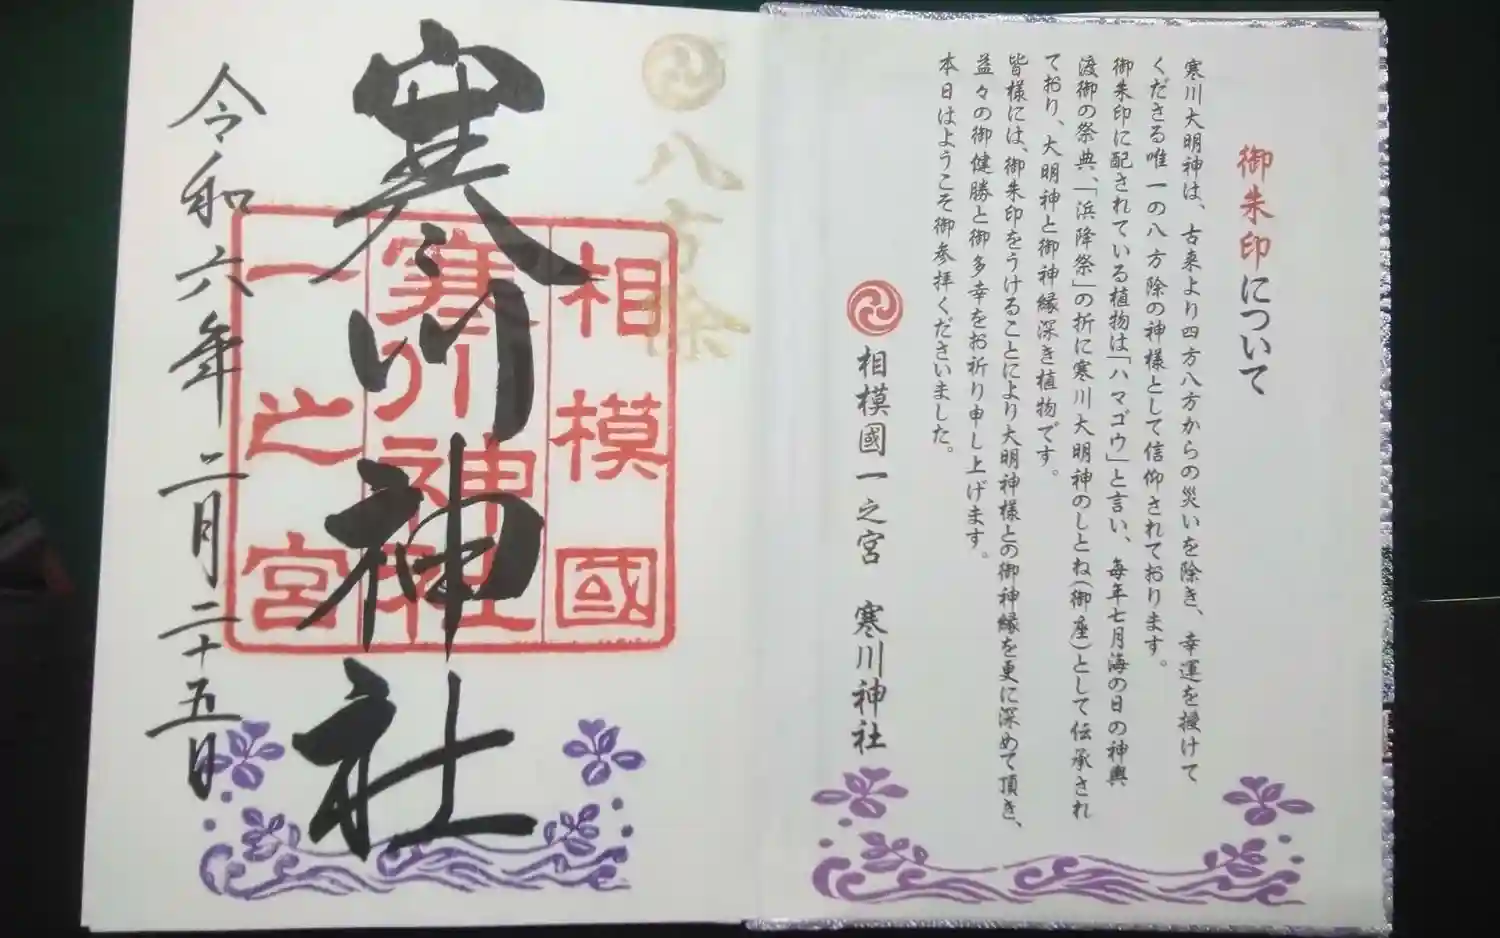 御朱印について
寒川大明神は、古来より四方八方からの災いを除き、幸運を授けて
くださる唯一の八方除の神様として信仰されております。
御朱印に配されている植物は「ハマゴウ」と言い、毎年七月海の日の神輿
渡御の祭典、「浜降祭」の折に寒川大明神のしとね(御座)として伝承され
ており、大明神と御神縁深き植物です。
皆様には、御朱印をうけることにより大明神様との御神縁を更に深めて頂き、
益々の御健勝と御多幸をお祈り申し上げます。
本日はようこそ御参拝くださいました。
相模國一之宮 寒川神社
八方除
相模國
寒川神社
一之宮
寒川神社
令和六年二月二十五日